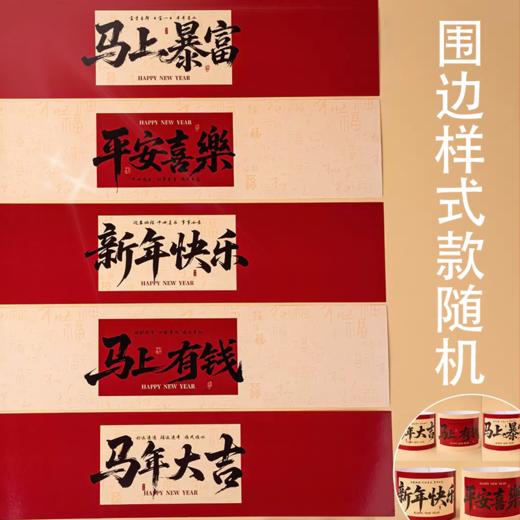 马上暴富
HAPPY NEW YEAR
HAPPY NEW YEAR
平安喜樂
新年快乐
HAPPY NEW YEAR
马上有钱
HAPPY NEW YEAR
马年大吉
HAPPY NEW YEAR
围边样式款随机
年大吉
马上有钱
马上暴
新年快乐
HAPPY NEW YEAR
平安喜樂